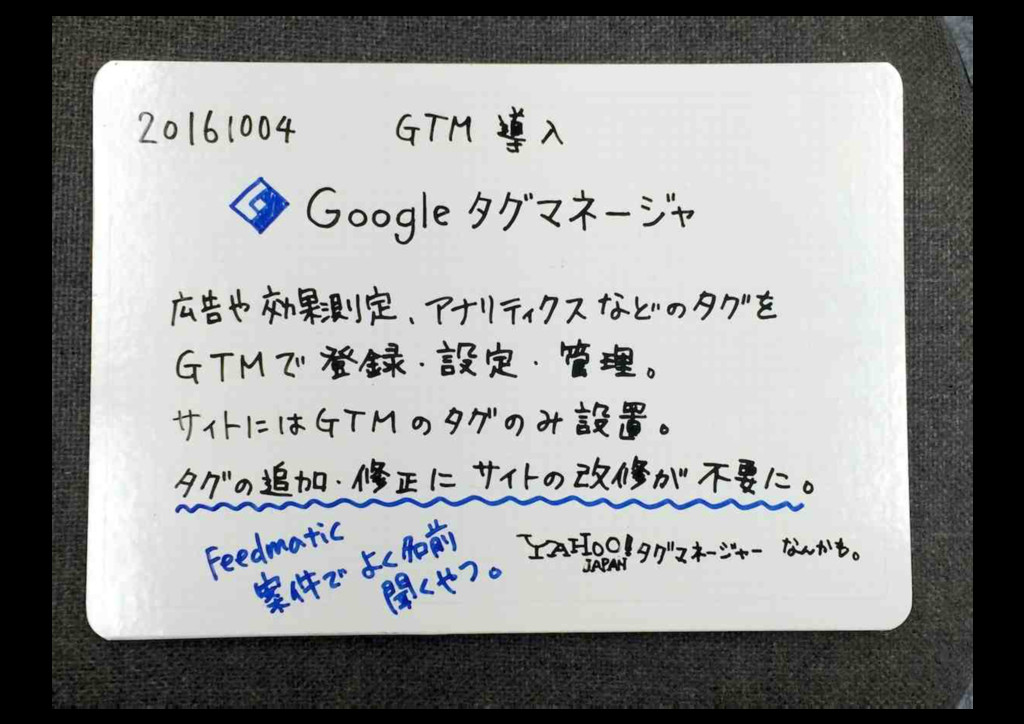 20161004 GTM 導入
Google タグマネージャ
広告や効果測定、アナリティクスなどのタグを
GTMで登録・設定・管理。
サイトにはGTMのタグのみ設置。
タグの追加・修正にサイトの改修が不要に。
Feedmatic
案件でよく名前
聞くやつ。
YAHOO! JAPAN タグマネージャー なんかも。